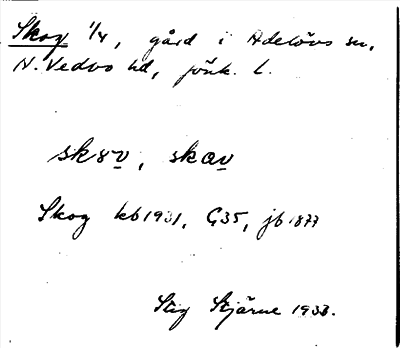 Skog 1/4, gård i Adelövs sn,
N. Vedbo hd, Jönk. L.
skov, skav
Skog kb 1931, G35, jb 1877
Stig Stjärne 1933.